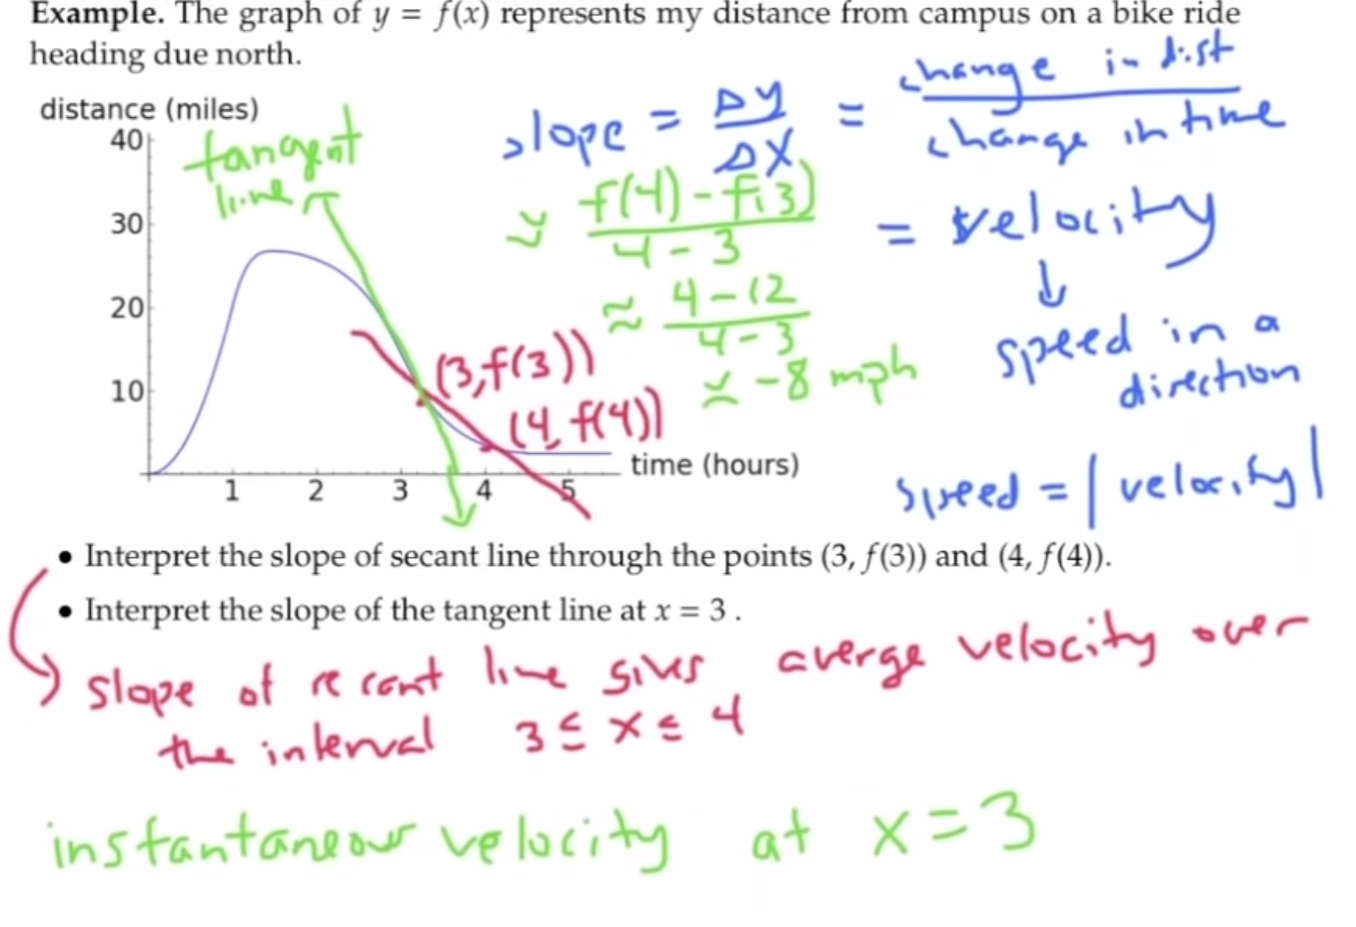 Example. The graph of y = f(x) represents my distance from campus on a bike ride
heading due north.
distance (miles)
40
30
20
10
1 2 3 4 5
time (hours)
tangent
line
slope = Δy/Δx = change in dist/change in time
≈ f(4) - f(3)/4 - 3
= velocity
≈ 4 - 12/4 - 3
↓
≈ -8 mph
speed in a
direction
(3, f(3))
(4, f(4))
speed = |velocity|
• Interpret the slope of secant line through the points (3, f(3)) and (4, f(4)).
• Interpret the slope of the tangent line at x = 3 .
slope of secant line gives averge velocity over
the interval 3 ≤ x ≤ 4
instantaneous velocity at x = 3